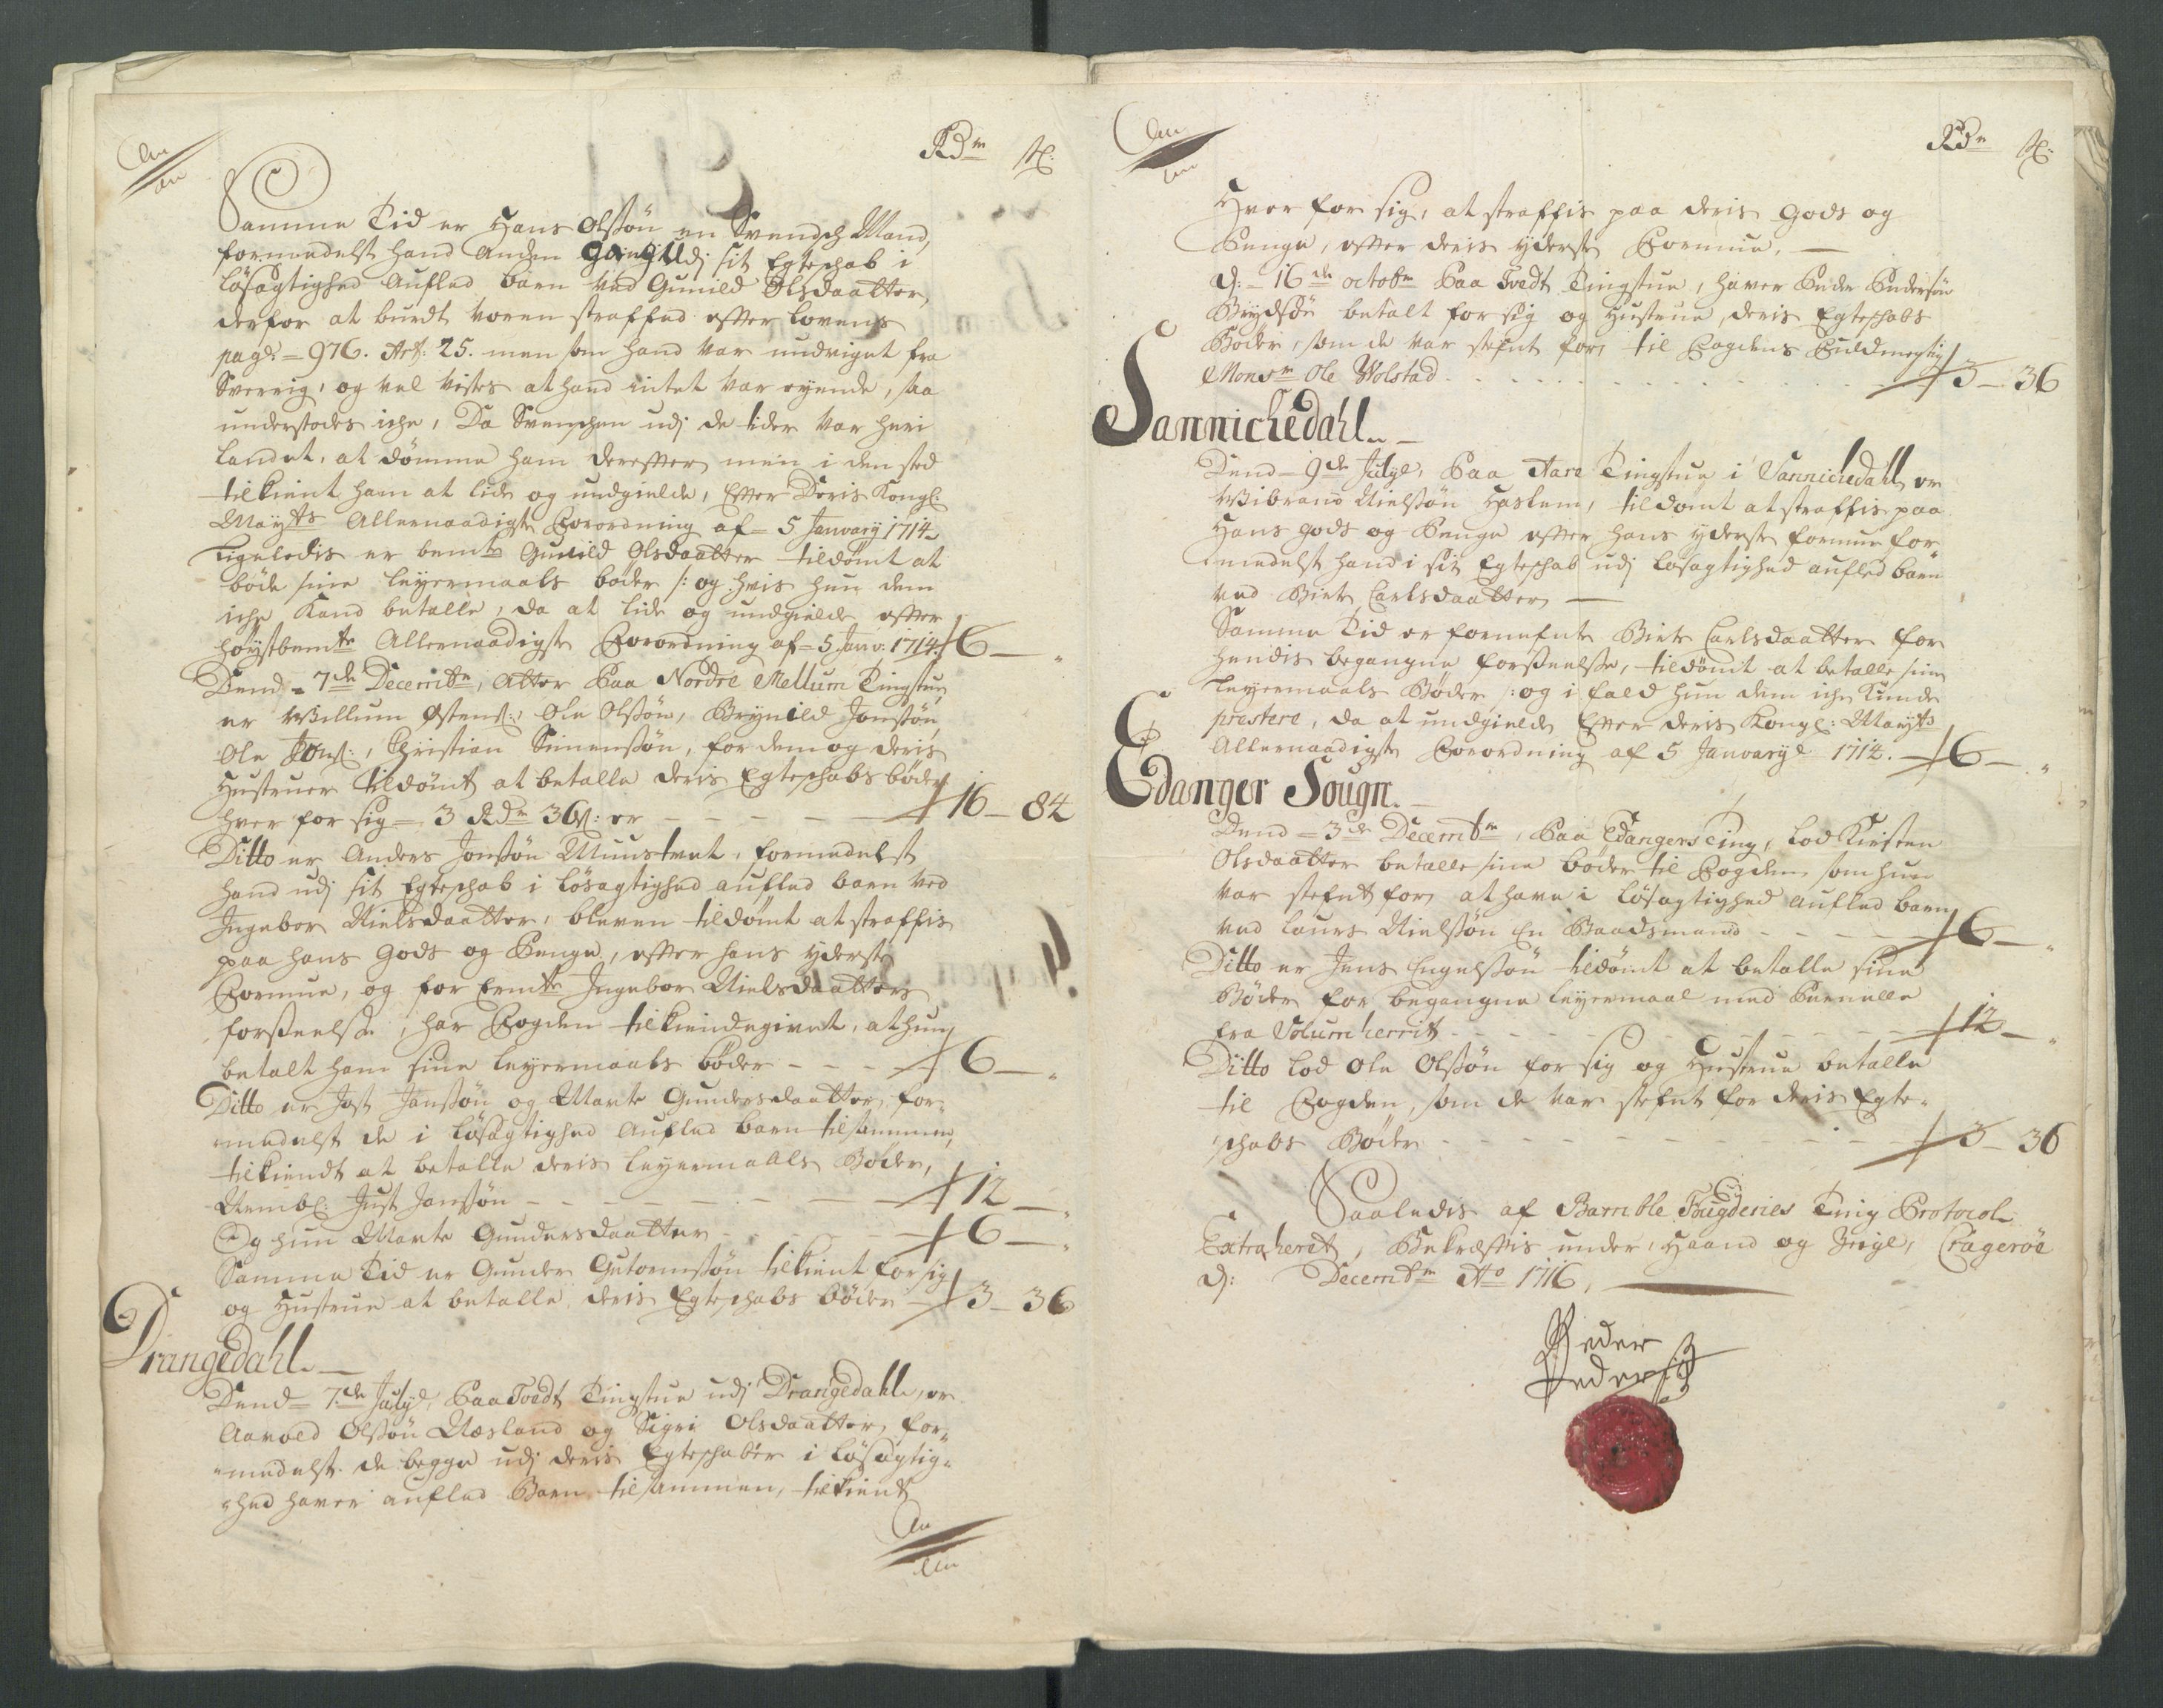 Rdr ß:
Samme Tid er Hans Olssøn en Svendsch Mand,
formedelst hand Anden gang Udj sit Egteschab i
løsagtighed Aufled barn ved Gunild Olsdaatter,
derfor at burdt voren straffed effter lovens
pag: 976. Art: 25. men som hand var undviget fra
Sverrig, og vel vistes at hand intet var eyende, saa
understodes iche, Da Svenschen udj de tider var heri
landet, at dømme ham dereffter, men i den sted
tilkient ham at lide og undgielde, Effter Deris Kongl:
Mayts Allernaadigste Forordning af 5 January 1714
Ligeledis er bemte Gunild Olsdaatter tildømt at
bøde sine leyermaals bøder /: og hvis hun dem
iche Kand betalle, da at lide og undgielde effter
høystbemte Allernaadigste Forordning af 5 Janv: 1714. 6 — "
Dend 7de Decembr, Atter Paa Nordre Mellum Tingstue,
er Willum Østens:, Ole Olssøn, Brynild Jonssøn,
Ole Jons:, Christian Simenssøn, for dem og deris
Hustruer tildømt at betalle deris Egteschabs bøder
hver for sig 3 Rdr 36 ß: er — 16 — 84
Ditto er Anders Jonssøn Munstvet, formedelst
hand udj sit Egteschab i løsagtighed aufled barn ved
Ingebor Nielsdaatter, bleven tildømt at straffis
paa hans Gods og Penge, effter hans yderste
Formue, og for bemte Ingebor Nielsdaatters
forseelse, har Fogden tilkiendegivet, at hun
betalt ham sine leyermaals bøder — 6 — "
Ditto er Jost Janssøn og Marte Gundersdaatter, for-
medelst de i løsagtighed Aufled barn tilsammen,
tilkiendt at betalle deris leyermaals Bøder,
Nembl: Just Janssøn — 12 — "
Og hun Marte Gundersdaatter — 6 — "
Samme Tid er Gunder Gutormssøn tilkient for sig
og Hustrue at betalle deris Egteschabs bøder — 3 — 36
Drangedahl.
Dend 7de Julij, Paa Tvedt Tingstue udj Drangedahl, er
Aavold Olssøn Næsland og Sigri Olsdaatter, for-
medelst de begge udj deris Egteschaber i løsagtig-
hed haver aufled Barn tilsammen, tilkient
Rdr ß:
Hver for sig, at straffis paa deris Gods og
Penge, effter deris yderste Formue,
d: 16de octobr Paa Tvedt Tingstue, haver Peder Pedersøn
betalt for sig og Hustrue, deris Egteschabs
Bøder, som de var stefnt for, til Fogdens Fuldmegtig
Monsr Ole Wolstad — 3 — 36
Sannichedahl.
Dend 9de Julye, Paa Aarø Tingstue i Sannichedahl, er
Wibrand Nielssøn Haslem, tildømt at straffis paa
Hans gods og Penge effter hans yderste formue for-
medelst hand i sit Egteschab udj løsagtighed aufled barn
ved Birte Carlsdaatter
Samme Tid er fornefnte Birte Carlsdaatter for
hendis begangne forseelse, tildømt at betalle sine
leyermaals Bøder /: og i fald hun dem iche Kunde
prestere, da at undgielde Effter deris Kongl: Mayts
Allernaadigste Forordning af 5 Januarye 1714. — 6 — "
Edanger Sougn.
Dend 3de Decembr, Paa Edangers Ting, lod Kirsten
Olsdaatter betalle sine bøder til Fogden, som hun
var stefnt for, at have i løsagtighed Aufled barn
ved Laurs Nielssøn En Baadsmand — 6 — "
Ditto er Jens Engelssøn tildømt at betalle sine
Bøder for begangne leyermaal med Pernelle
fra Solum herrit — 12 — "
Ditto lod Ole Olssøn for sig og Hustrue betalle
til Fogden, som de var stefnt for deris Egte-
schabs Bøder — 3 — 36
Saaledis af Bamble Fougderies Ting Protocol
Extraheret, Bekræfftis under Haand og Zeigl, Cragerøe
d: Decembr Ao 1716,
Peder
Peders: